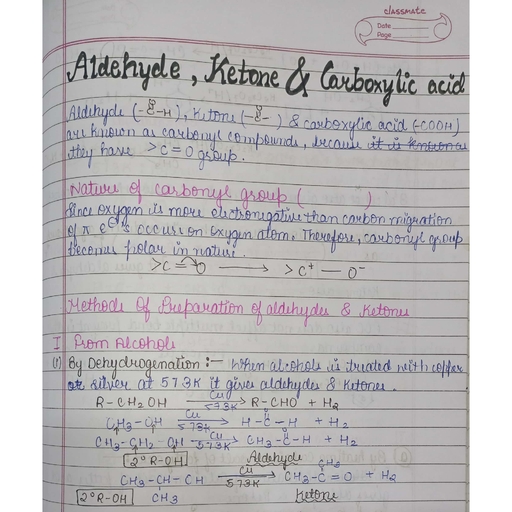 classmate
Date
Page
Aldehyde, Ketone & Carboxylic acid
Aldehyde (-C-H), Ketone (-C-) & carboxylic acid (-COOH)
O
O
are known as carbonyl compounds, because it is known as
they have >C=O group.
Nature of carbonyl group ( )
Since oxygen is more electronegative than carbon migration
of π e⊖'s occurs on oxygen atom. Therefore, carbonyl group
becomes polar in nature.
>C=O ⟶ >C⁺ — O⁻
Methods Of Preparation of aldehydes & Ketones
I From Alcohols
(1) By Dehydrogenation :- When alcohols is treated with copper
or silver at 573K it gives aldehydes & Ketones.
R-CH2OH Cu 573K ⟶ R-CHO + H2
CH3-OH Cu 573K ⟶ H-C-H + H2
O
CH3-CH2-OH Cu 573K ⟶ CH3-C-H + H2
O
2°R-OH Aldehyde
CH3-CH-CH Cu 573K ⟶ CH3-C=O + H2
CH3
2°R-OH CH3 Ketone